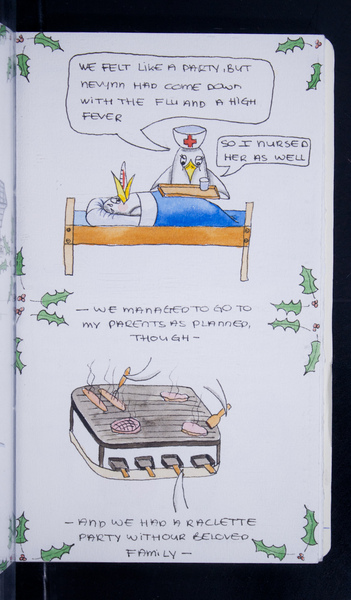 WE FELT LIKE A PARTY, BUT
NEVYNN HAD COME DOWN
WITH THE FLU AND A HIGH
FEVER
SO I NURSED
HER AS WELL
- WE MANAGED TO GO TO
MY PARENTS AS PLANNED,
THOUGH -
- AND WE HAD A RACLETTE
PARTY WITH OUR BELOVED
FAMILY -